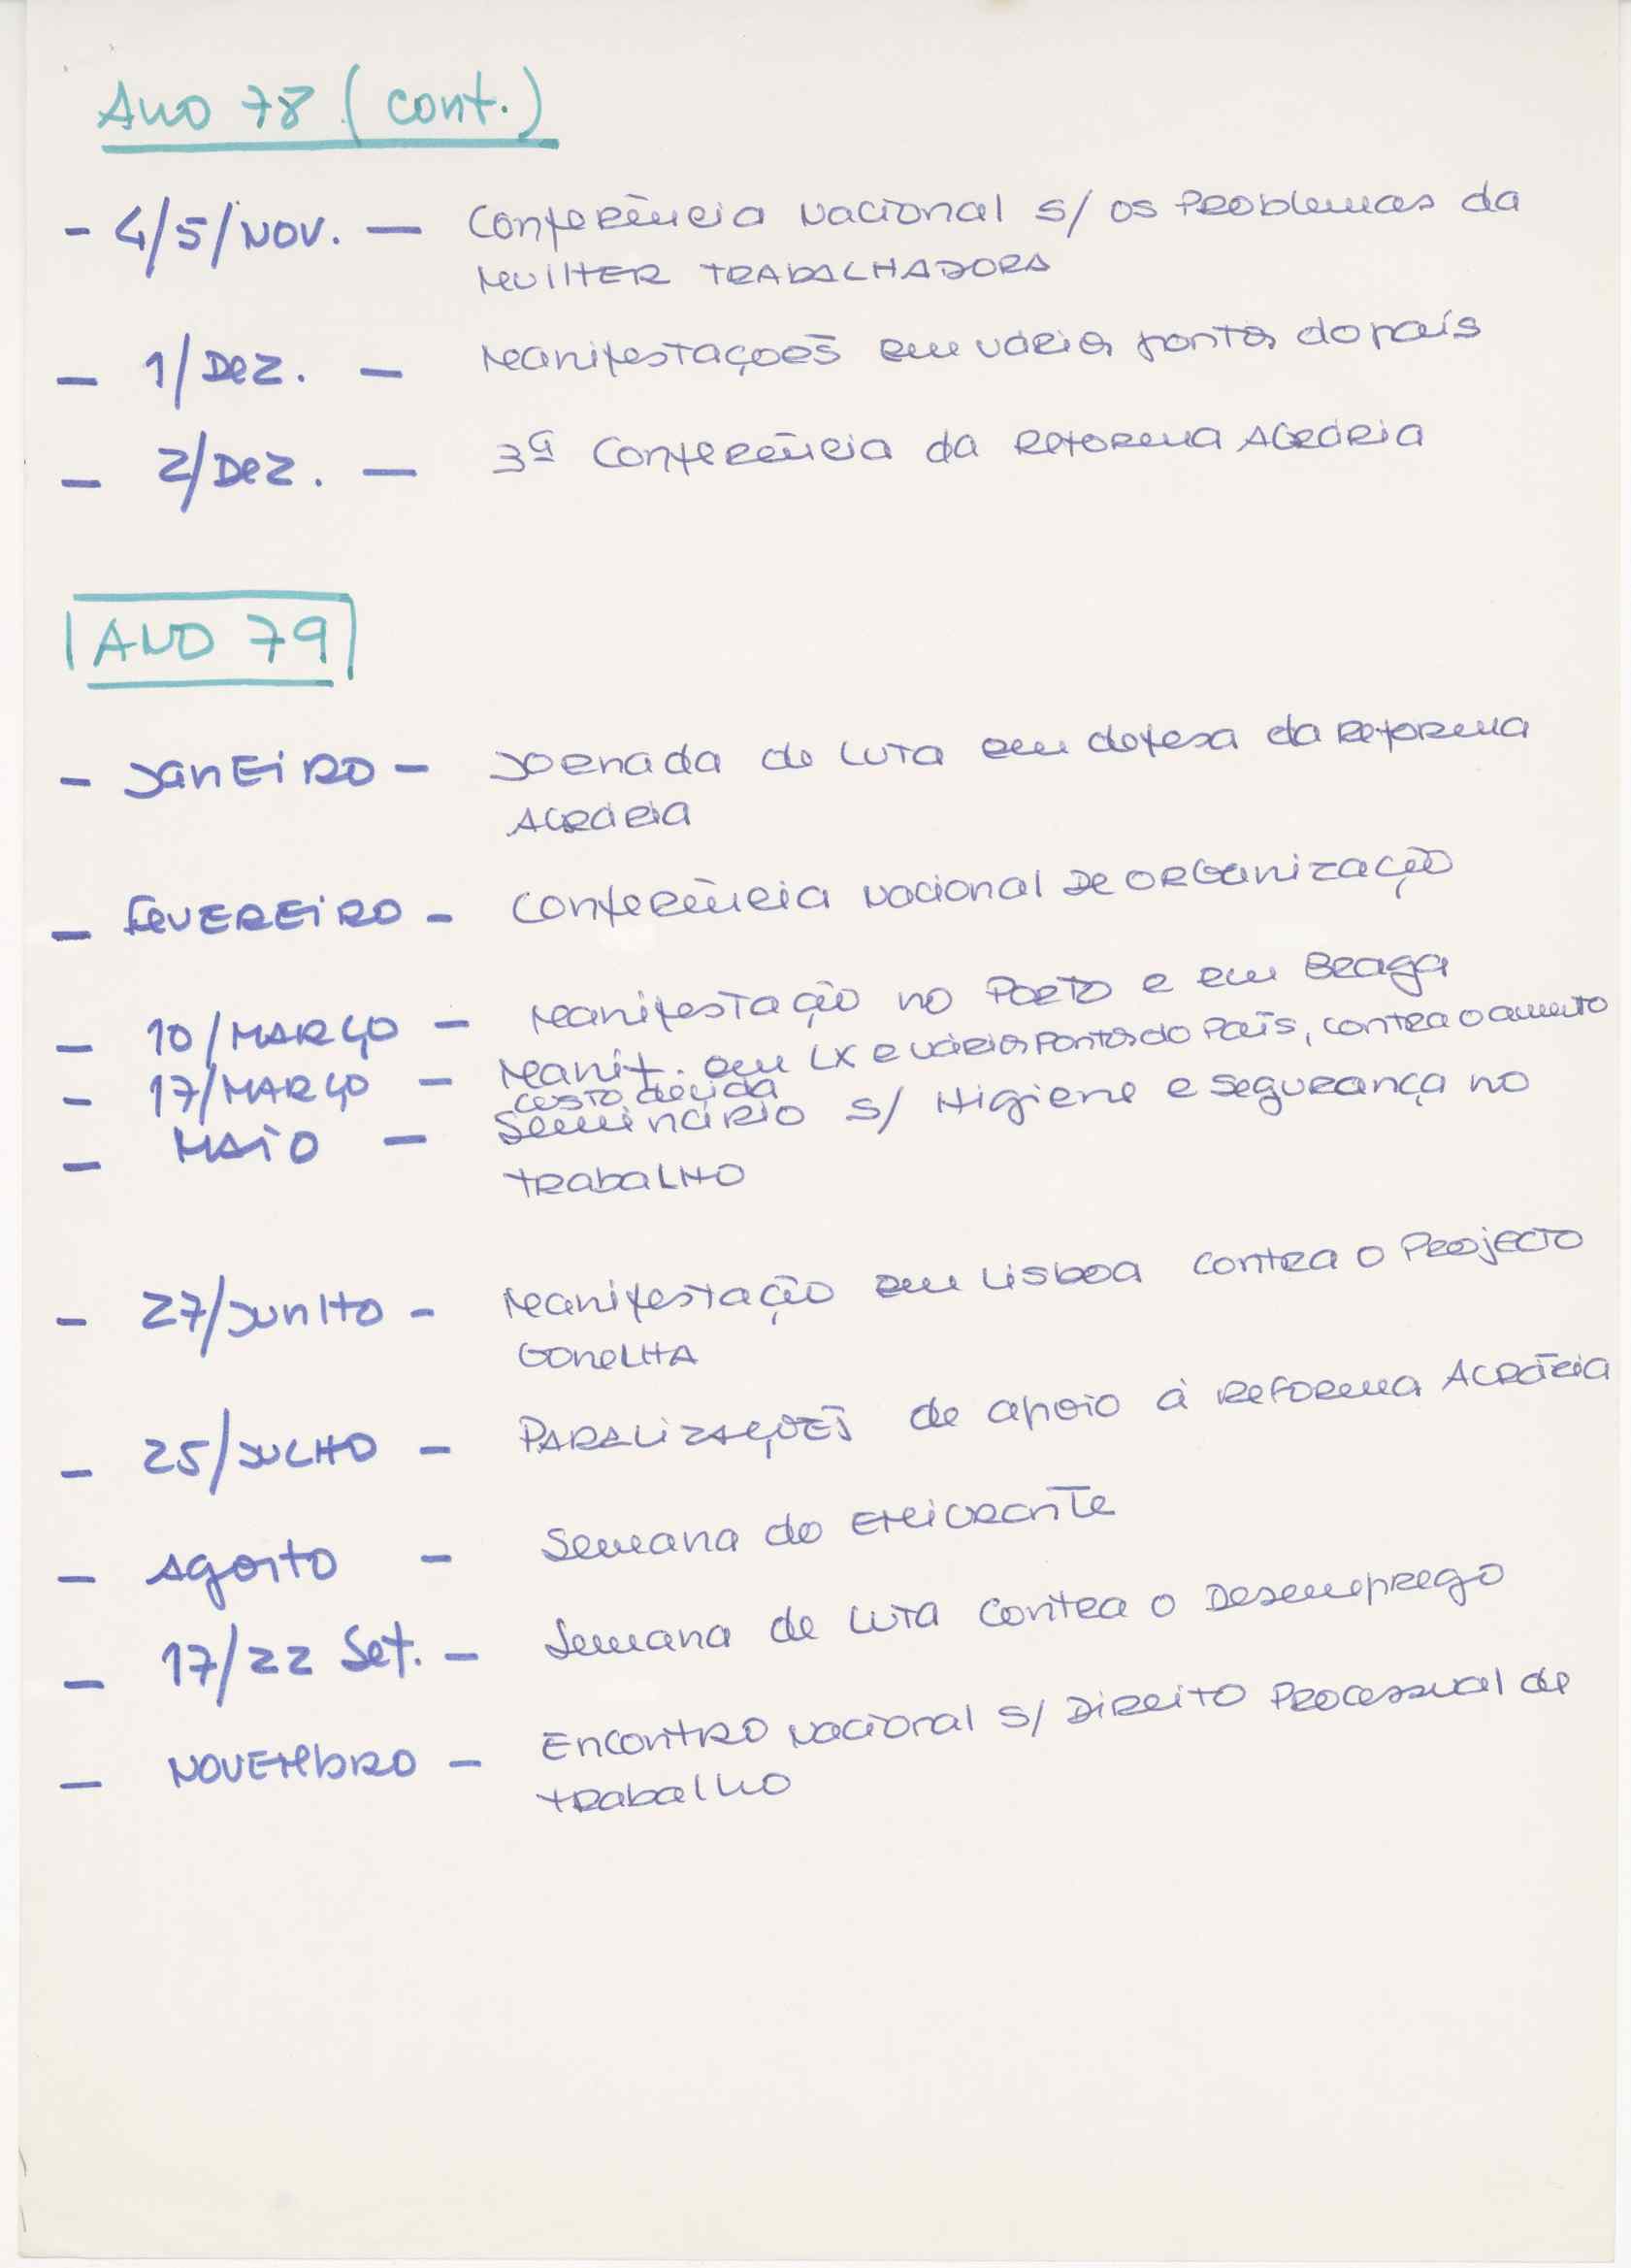 Ano 78 (cont.)
- 4/5/Nov. — Conferência Nacional s/ os Problemas da
MULHER TRABALHADORA
- 1/Dez. - Manifestações em vários pontos do país
- 2/Dez. - 3ª Conferência da Reforma Agrária
ANO 79
- JANEIRO - Jornada de Luta em defesa da Reforma
Agrária
- FEVEREIRO - Conferência Nacional de Organização
- 10/MARÇO - Manifestação no Porto e em Braga
- 17/MARÇO - Manif. em LX e vários Pontos do País, contra o aumento
custo de vida
- MAIO - Seminário s/ Higiene e Segurança no
trabalho
- 27/Junho - Manifestação em Lisboa contra o Projecto
GONELHA
- 25/JULHO - PARALIZAÇÕES de apoio à Reforma Agrária
- Agosto - Semana do Emigrante
- 17/22 Set. - Semana de Luta contra o Desemprego
- NOVEMBRO - Encontro Nacional s/ Direito Processual de
trabalho